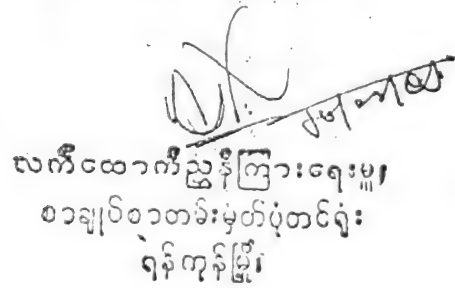 လက်ထောက်ညွှန်ကြားရေးမှူး၊
စာချုပ်စာတမ်းမှတ်ပုံတင်ရုံး
ရန်ကုန်မြို့၊